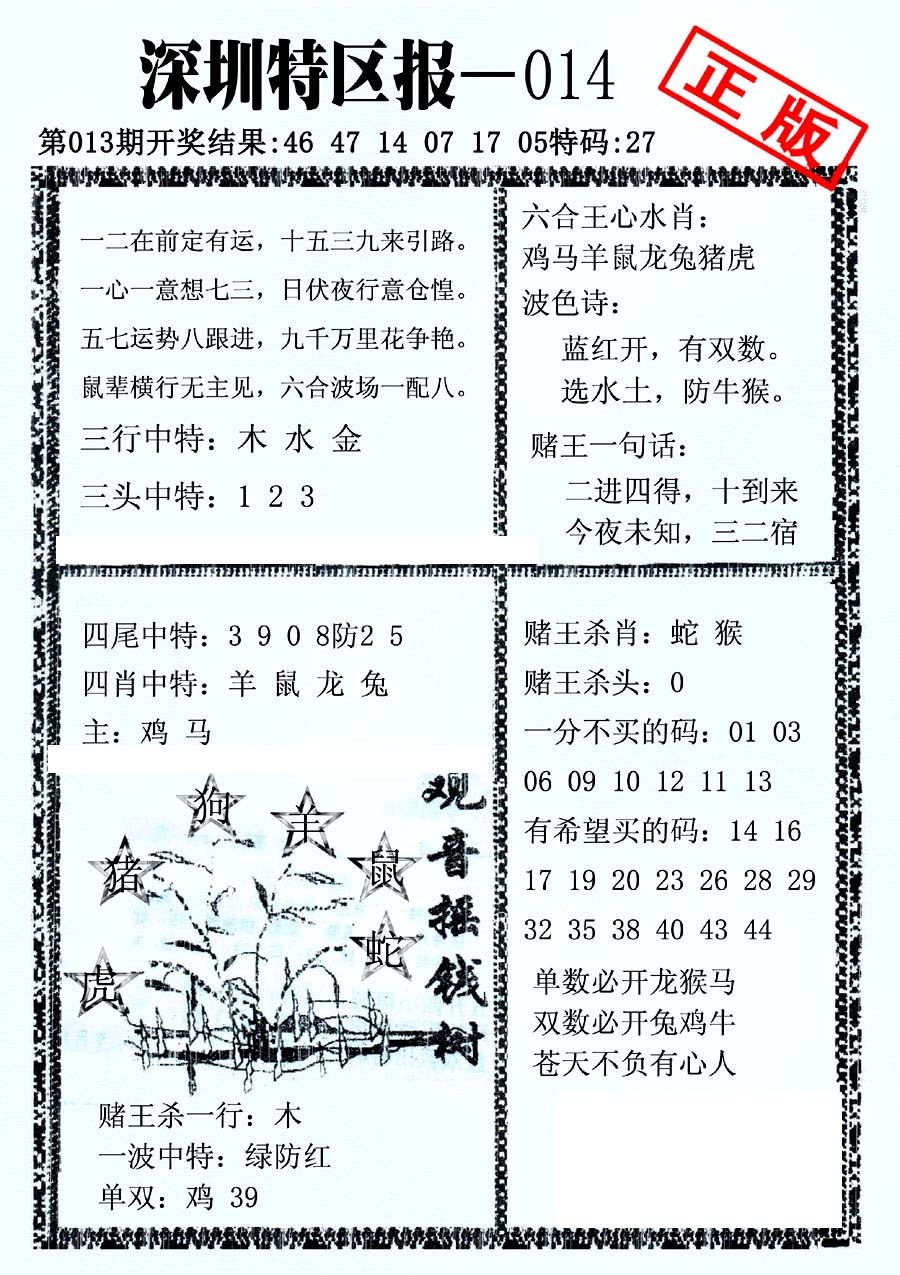 深圳特区报—014
正版
第013期开奖结果:46 47 14 07 17 05特码:27
一二在前定有运，十五三九来引路。
一心一意想七三，日伏夜行意仓惶。
五七运势八跟进，九千万里花争艳。
鼠辈横行无主见，六合波场一配八。
三行中特：木 水 金
三头中特：1 2 3
六合王心水肖：
鸡马羊鼠龙兔猪虎
波色诗：
蓝红开，有双数。
选水土，防牛猴。
赌王一句话：
二进四得，十到来
今夜未知，三二宿
四尾中特：3 9 0 8防2 5
四肖中特：羊 鼠 龙 兔
主：鸡 马
观音摇钱树
狗
羊
猪
鼠
蛇
虎
赌王杀一行：木
一波中特：绿防红
单双：鸡 39
赌王杀肖：蛇 猴
赌王杀头：0
一分不买的码：01 03
06 09 10 12 11 13
有希望买的码：14 16
17 19 20 23 26 28 29
32 35 38 40 43 44
单数必开龙猴马
双数必开兔鸡牛
苍天不负有心人